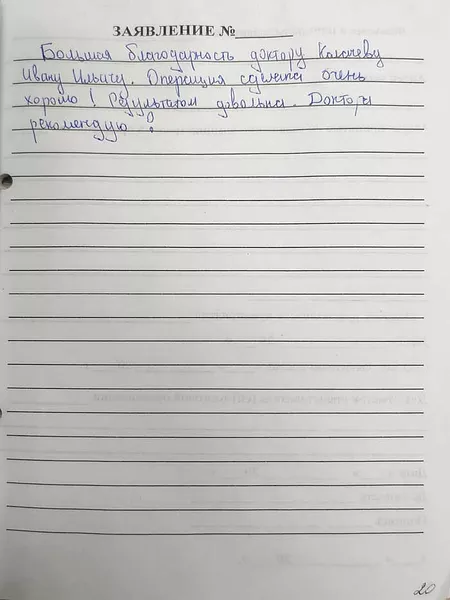 ЗАЯВЛЕНИЕ №
Большая благодарность доктору Калачеву
Ивану Ильичу. Операция сделана очень
хорошо! Результатом довольна. Доктора
рекомендую!
20